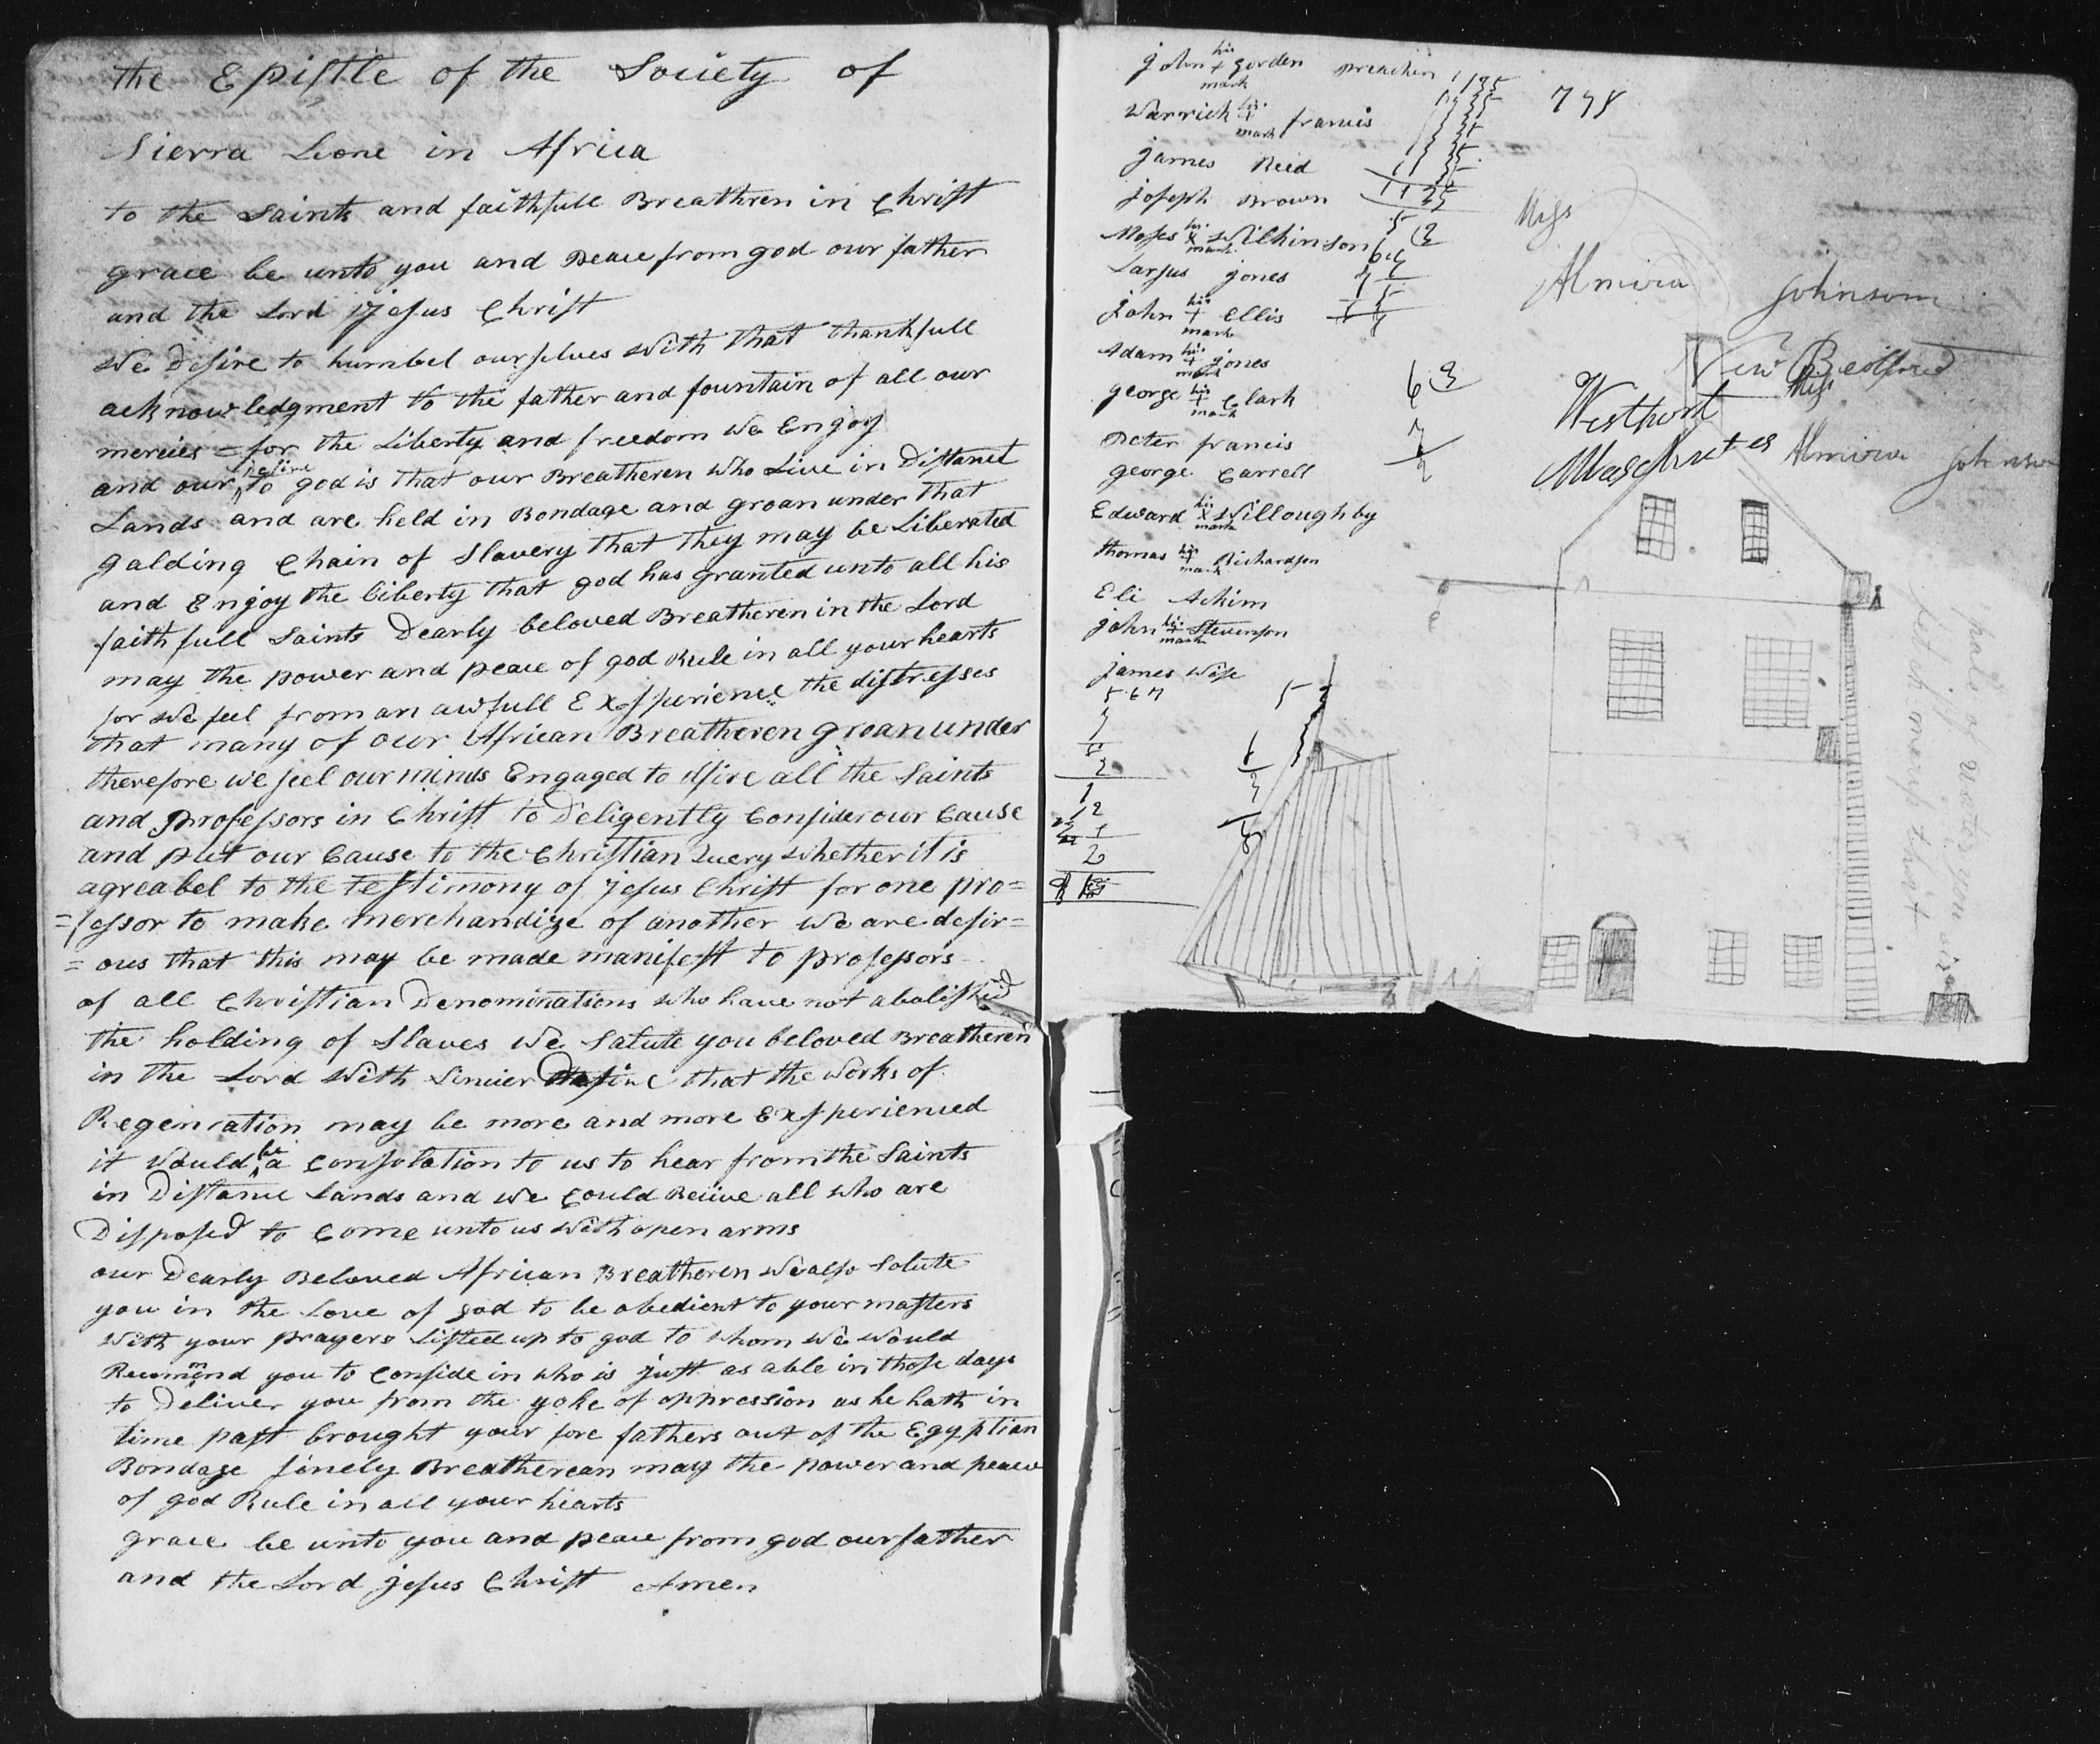 the Epistle of the Society of
Sierra Leone in Africa
to the Saints and faithfull Breathren in Christ
grace be unto you and peace from god our father
and the Lord Jesus Christ
We Desire to humbel ourselves With that thankfull
acknowledgment to the father and fountain of all our
mercies = for the Liberty and freedom We Engoy
and our desire to god is that our Breatheren Who Live in Distanct
Lands and are held in Bondage and groan under that
galding Chain of Slavery that they may be Liberated
and Engoy the liberty that god has granted unto all his
faithfull Saints Dearly beloved Breatheren in the Lord
may the power and peace of god Rule in all your hearts
for We feel from an awfull Exsperience the distresses
that many of our African Breatheren groan under
therefore we feel our minds Engaged to desire all the Saints
and professors in Christ to Deligently Consider our Cause
and put our Cause to the Christian Query Whether it is
agreabel to the testimony of Jesus Christ for one pro=
=fessor to make merchandize of another We are desir=
=ous that this may be made manifest to professors
of all Christian Denominations who have not abolished
the holding of Slaves We Salute you beloved Breatheren
in the Lord With Sincier Desire that the Works of
Regenration may be more and more Exsperienced
it Would be a Consolation to us to hear from the Saints
in Distance lands and we Could Recive all Who are
Disposed to Come unto us With open arms
our Dearly Beloved African Breatheren We also Solute
you in the Love of god to be obedient to your masters
With your prayers Lifted up to god to Whom We Would
Recommend you to Confide in Who is just as able in those days
to Deliver you from the yoke of oppression as he hath in
time past brought your fore fathers out of the Egyptian
Bondage finely Breatherean may the power and peace
of god Rule in all your hearts
grace be unto you and peace from god our father
and the Lord Jesus Christ Amen
John his + mark gorden preachin
Warrick his + mark francis
James Reed
Joseph Brown
Moses his x mark Wilkinson
Larsus Jones
John his + mark Ellis
Adam his + mark Jones
george his + mark Clark
peter francis
george Carrell
Edward his x mark Willoughby
thomas his + mark Richardson
Eli Ackim
John his + mark Stevenson
James Wise
798
Miss
Almira Johnson
New Bedford
Miss
Westport
Almira Johnson
5 6 7
6 3